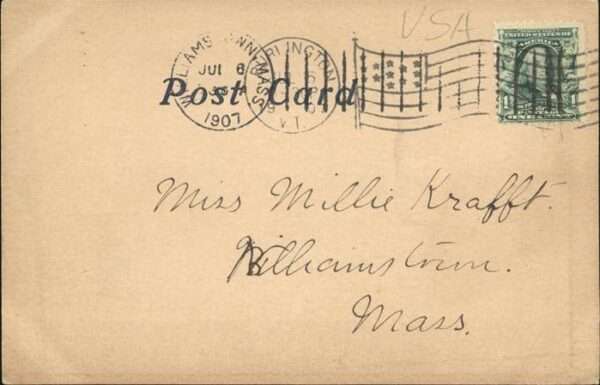 USA
WILLIAMSTOWN MASS
JUL 6
1907
BURLINGTON
VT.
UNITED STATES OF AMERICA
1 1
Post Card
Miss Millie Krafft.
Williamstown.
Mass.